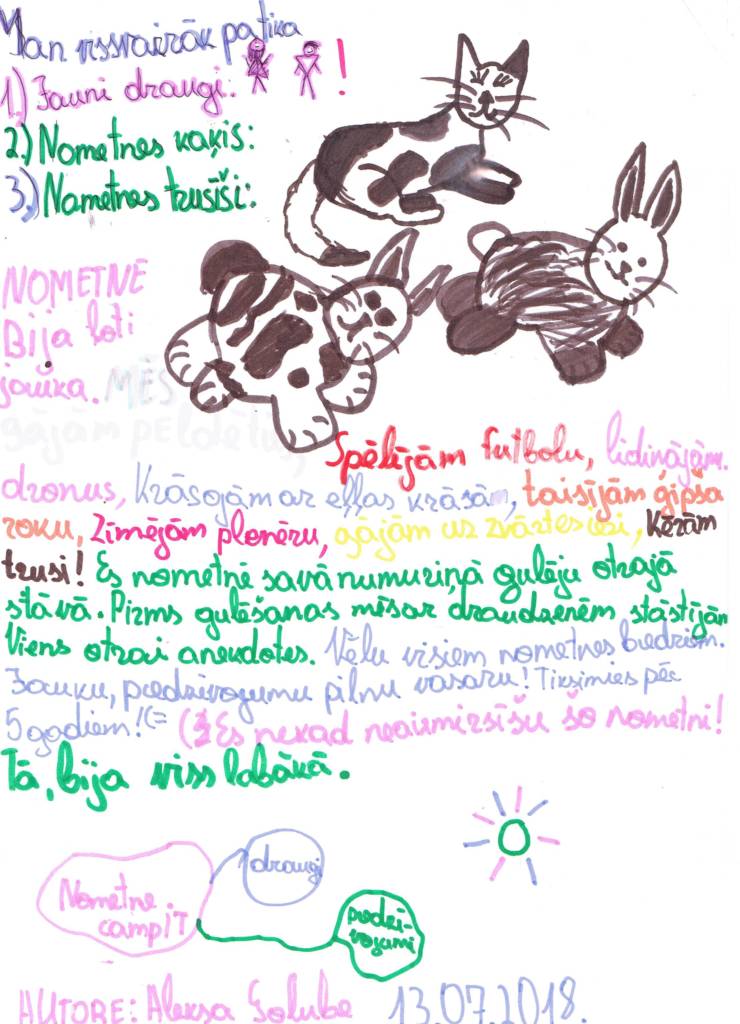 Man vissvairāk patika
1.) Jauni draugi. !
2.) Nometnes kaķis:
3.) Nametnes trusīši:
NOMETNĒ
Bija ļoti
jauka. MĒS
gājām pēldētu,
Spēlējām futbolu, lidinājām.
dronus, Krāsojām ar eļļas krāsām, taisījām ģipša
roku, Zīmējām plenēru, gājām uz zvārtes iezi, Ķērām
trusi! Es nometnē savā numuriņā gulēju otrajā
stāvā. Pirms gulēšanas mēs ar draudzenēm stāstījām
Viens otrai anekdotes. Vēlu visiem nometnes biedriem.
Jauku, piedzīvojumu pilnu vasaru! Tiksimies pēc
5 godiem! (= Es nekad neaizmirsīšu šo nometni!
Tā, bija viss labākā.
Nometne campIT
draugi
piedzī-
vojumi
AUTORE: Aleksa Golube 13.07.2018.